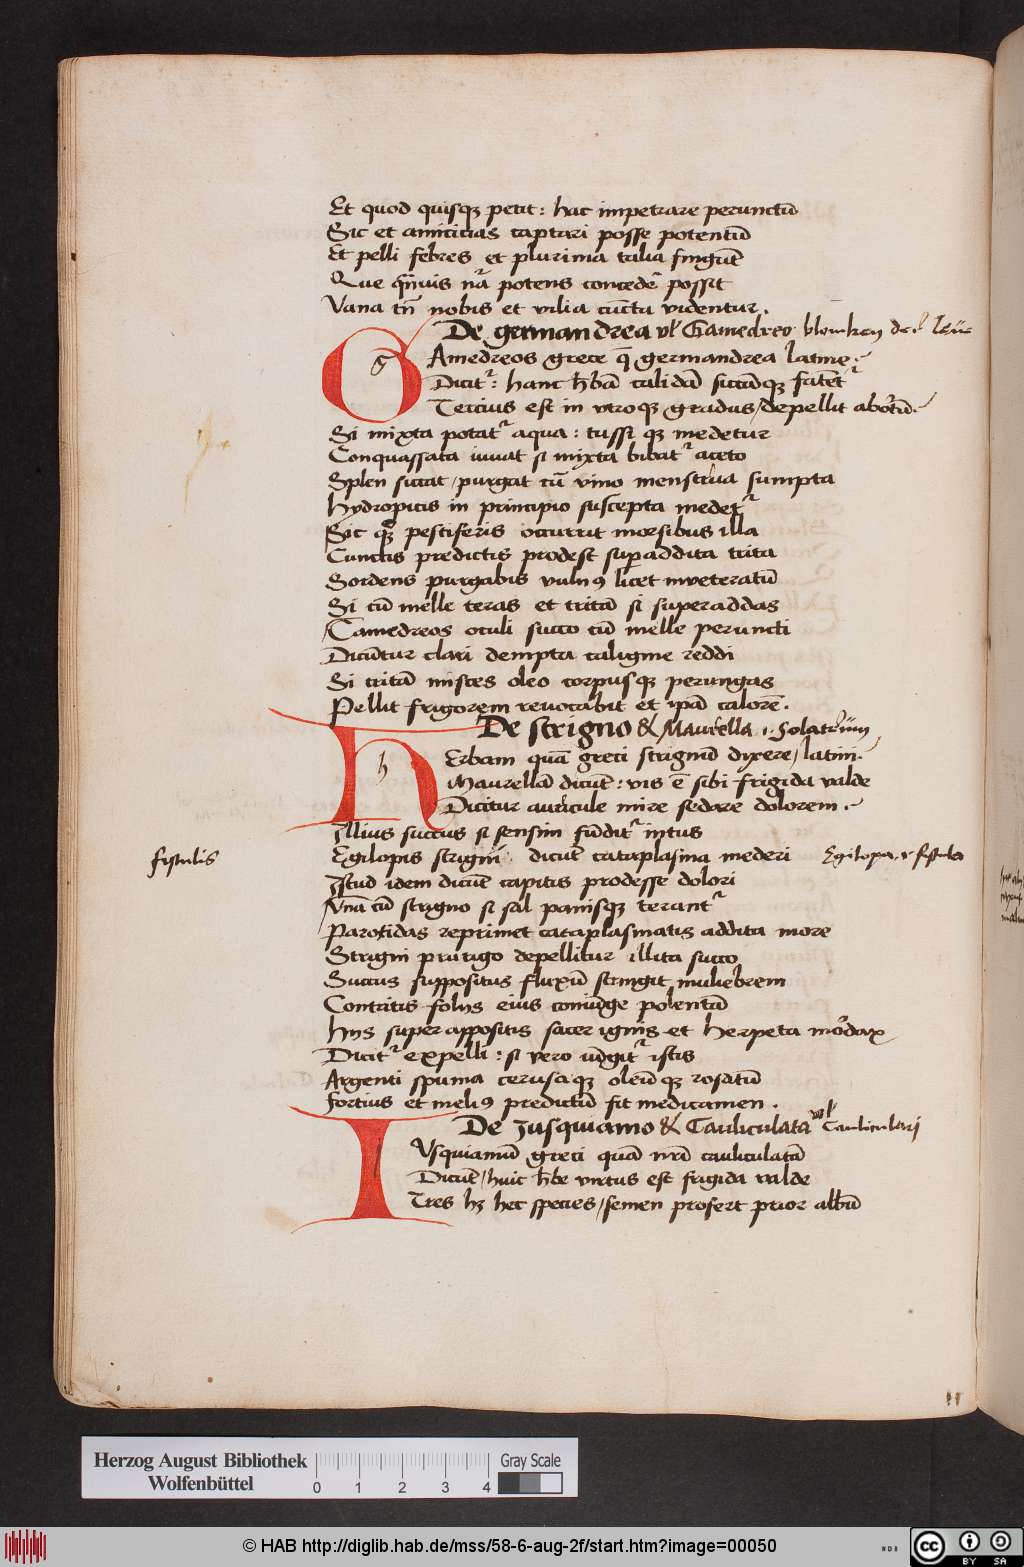 Et quod quisqȝ petit : hac impetrare perunctū
Sic et amicicias captari posse potentū
Et pelli febres et plurima talia fingūt
Que q̄mvis nr̄a potens concedē possit
Vana tn̄ nobis et vilia cūcta videntur.
De germandrea vl̓ Gamedreo
Amedreos grece q̄ germandrea latine
g
Dicitʳ : hanc h̄bā calidā siccāqȝ fatētʳ
Tercius est in vtroqȝ gradus / depellit abortū
Si mixta potatʳ aqua : tussi qȝ medetur
Conquassata iuuat si mixta bibatʳ aceto
Splen siccat / purgat cū vino menstrua sumpta
Hydropicis in principio suscepta medetʳ
Sic qȝ pestiferis occurrit morsibus illa
Cunctis predictis prodest superaddita trita
Sordens purgabis vulnꝰ licet inueteratū
Si cū melle teras et tritā si superaddas
Camedreos oculi succo cū melle peruncti
Dicūtur clari dempta caligine reddi
Si tritā misces oleo corpusqȝ perungas
Pellit frigorem reuocabit et ipā calorē.
De strigno & Maurella .i. Solatrum
Erbam quā greci strignū dixere / latini
h
Maurellā dicūt : vis ē sibi frigida valde
Dicitur auricule mire sedare dolorem
Illius succus si sensim fūditʳ intus
fistulis
Egilopis strigni dicūt cataplasma mederi
Egilopa .i. fistula
Istud idem dicūt capitis prodesse dolori
Vnā cū strigno si sal panisqȝ terantʳ
Parotidas reprimet cataplasmatis addita more
Strigni prurigo depellitur illita succo
Succus suppositus fluxū stringit muliebrem
Contritis folijs eius coniūge polentā
Hijs superappositis sacer ignis et herpeta mordax
Dicitʳ expelli : si vero iūgitʳ istis
Argenti spuma cerusaqȝ oleūqȝ rosatū
Fortius et meliꝰ predictū fit medicamen.
De Jusquiamo & Cauliculata vel Canliculari
Vsquiamū greci quā nr̄ā cauliculatā
Dicūt / huic h̄be virtus est frigida valde
Tres hȝ hec species / semen profert prior albū
11
Herzog August Bibliothek
Wolfenbüttel
0 1 2 3 4
Gray Scale
© HAB http://diglib.hab.de/mss/58-6-aug-2f/start.htm?image=00050
cc BY SA